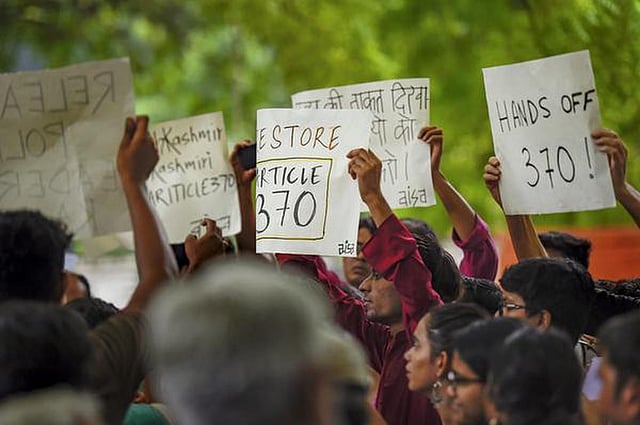 RELEA
POLI
Kashmir
ashmiri
ARITICLE370
ESTORE
RTICLE
370
aisa
की ताकत दिया
को
HANDS OFF
370 !
aisa